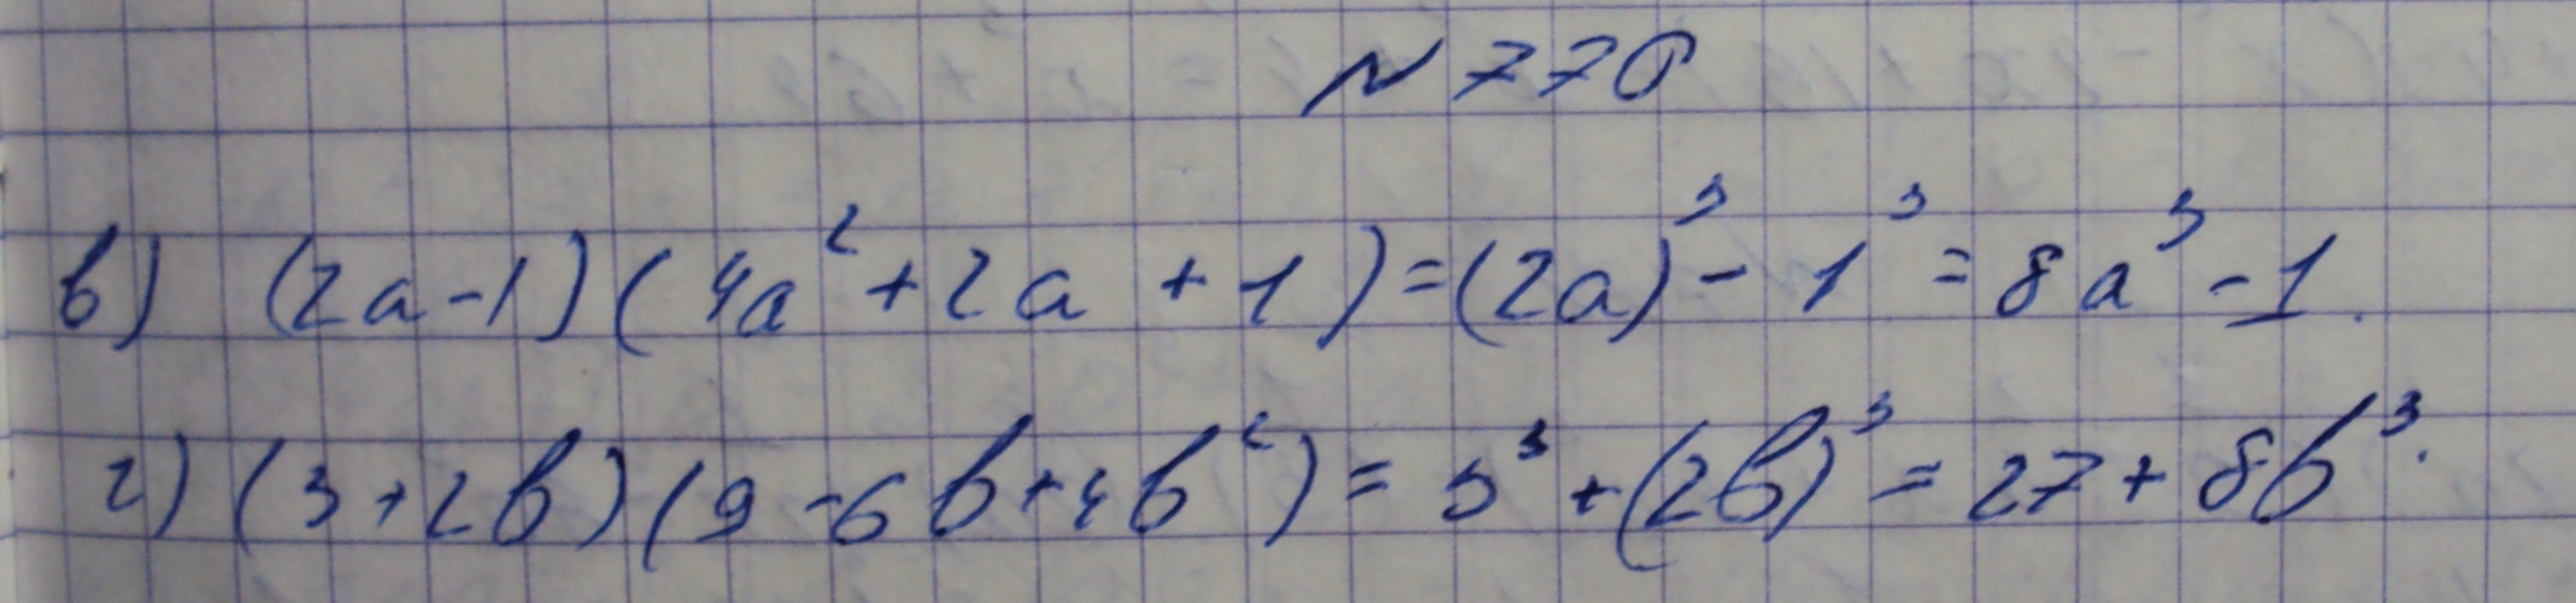 N 770
в) (2a-1)(4a²+2a+1)=(2a)³-1³=8a³-1.
г) (3+2b)(9-6b+4b²)=3³+(2b)³=27+8b³.